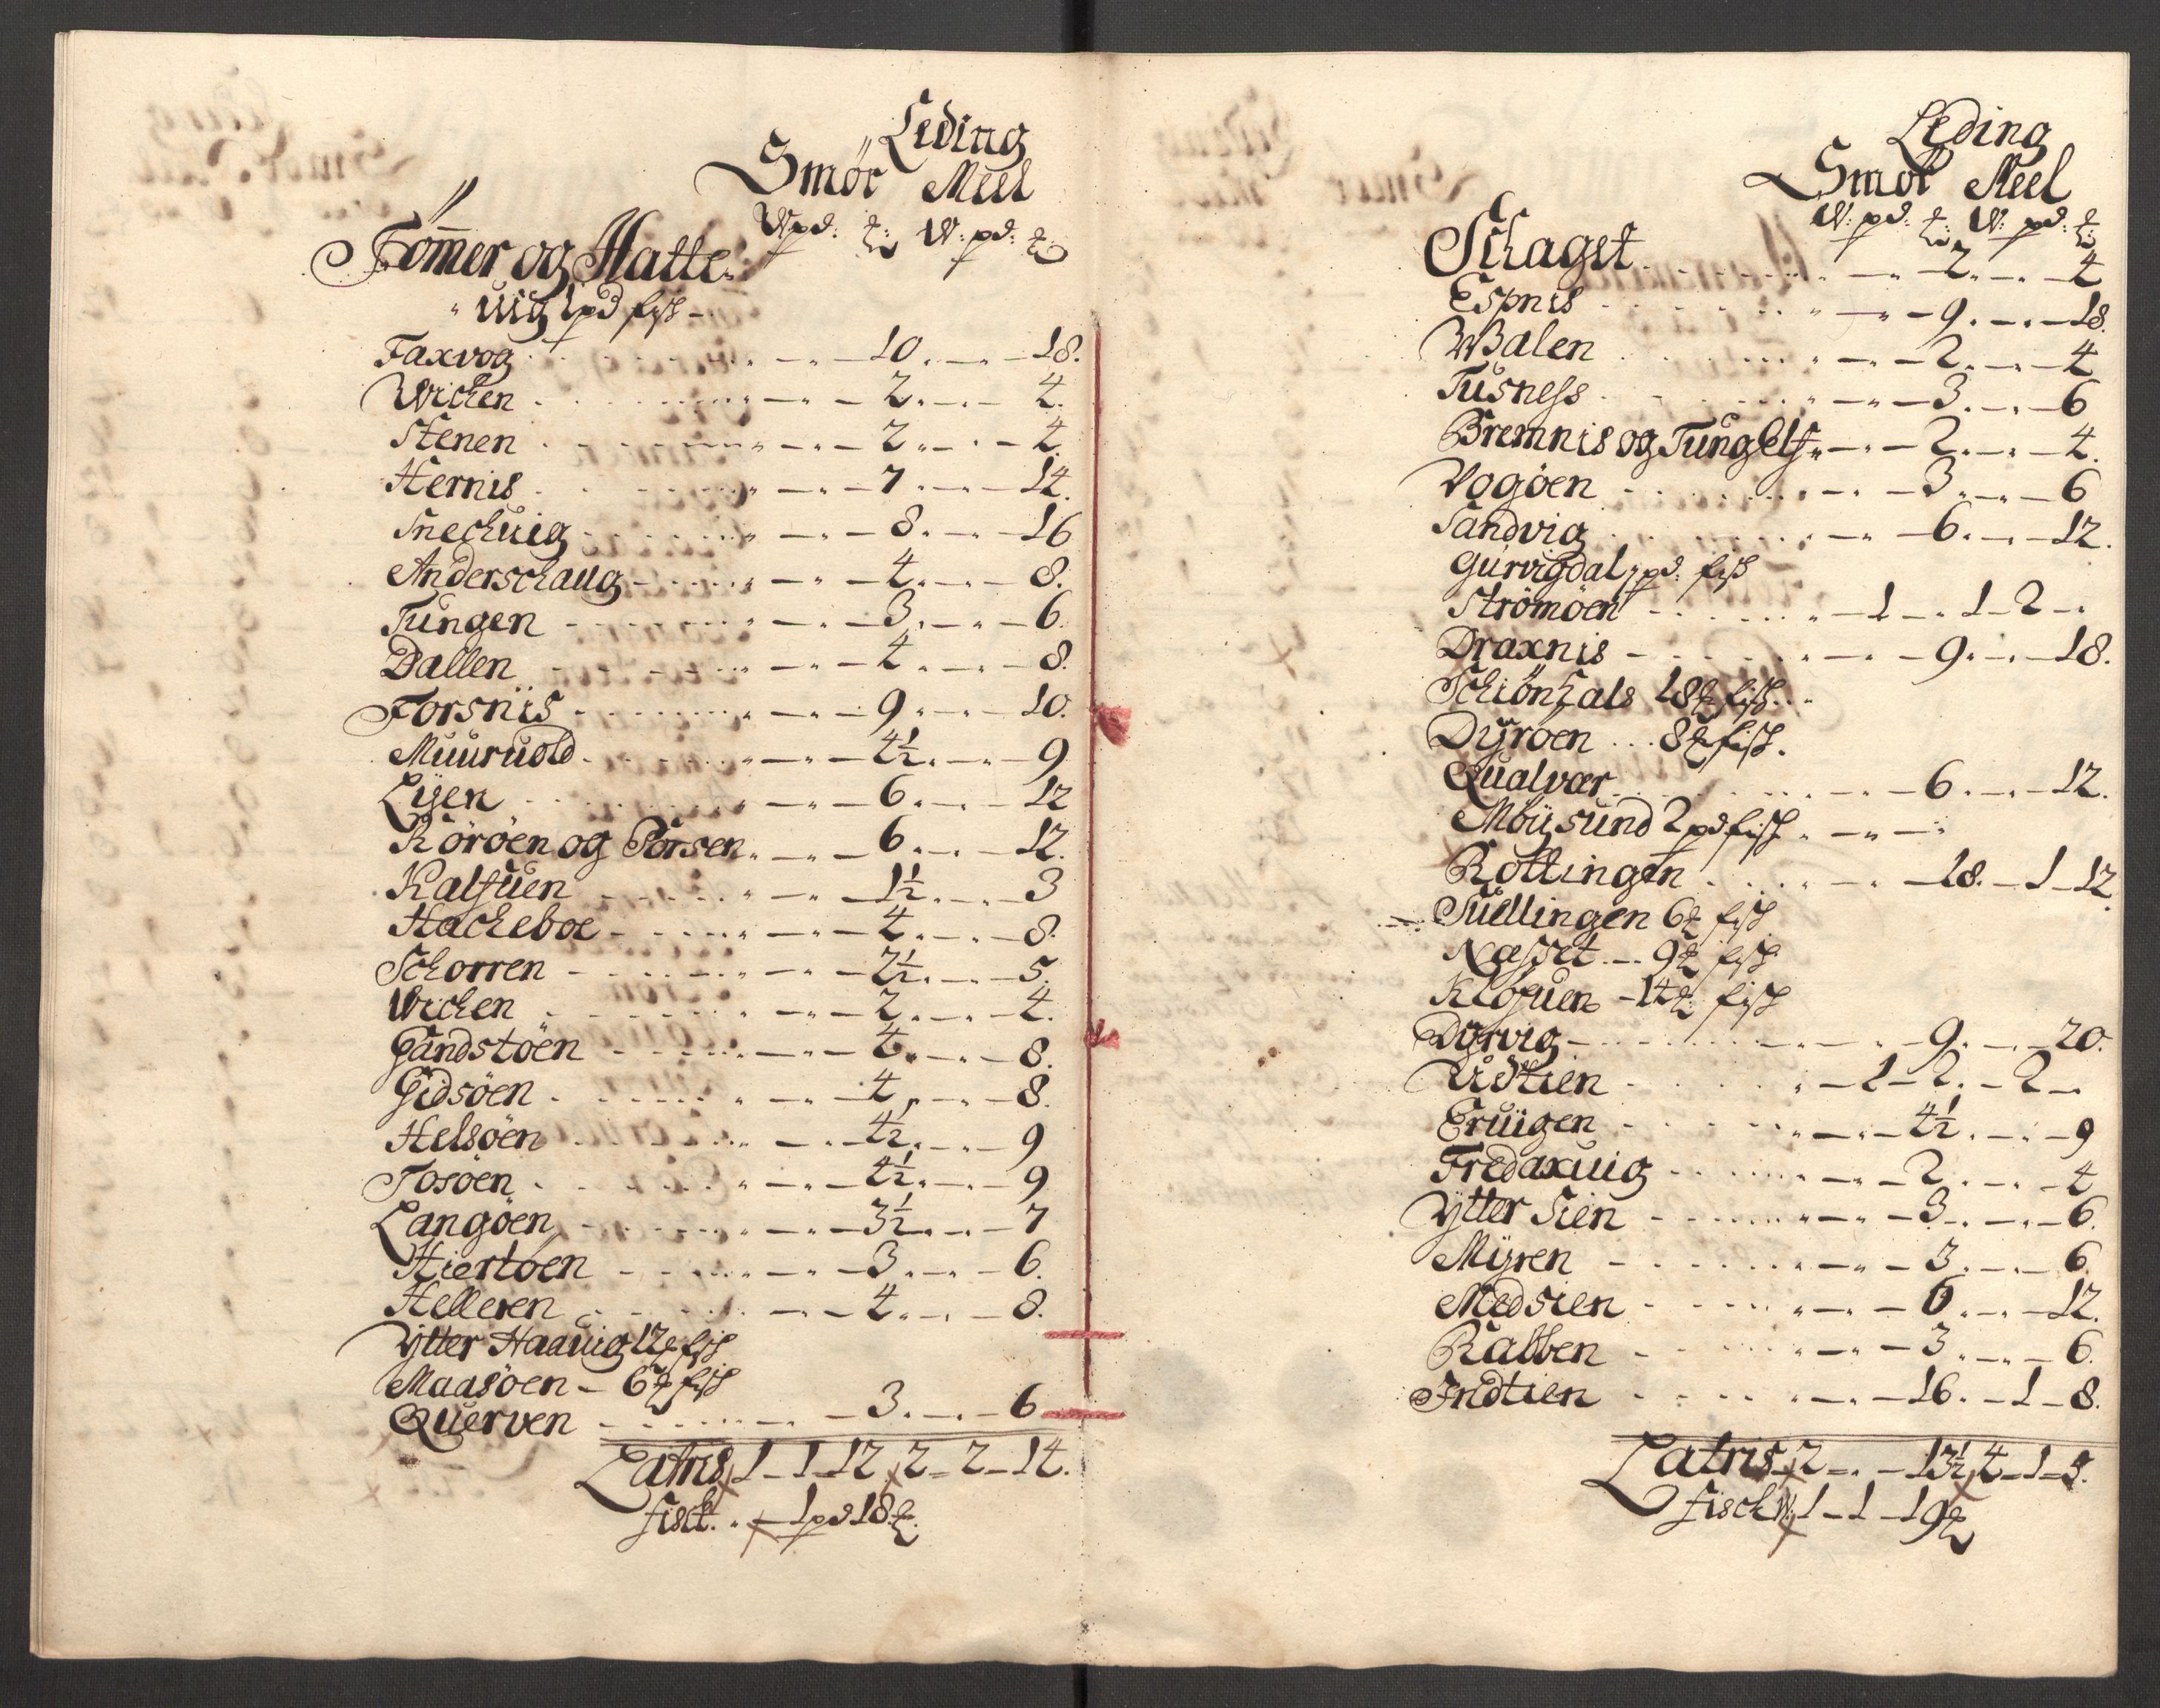 Leding
Smör Meel
W pd: ℔: W: pd: ℔
Tömer og Hatte-
uig 1 pd fisk -
Faxvog - 10 - 18.
Wichen - 2 - 4.
Stenen - 2 - 4.
Hernis - 7 - 14.
Snechuig - 8 - 16
Anderschaug - 4 - 8.
Tungen - 3 - 6.
Dallen - 4 - 8.
Forsnis - 9 - 10.
Muuruold - 4½ - 9
Lijen - 6 - 12
Köröen og Porsen - 6 - 12.
Kalfuen - 1½ - 3
Hacheboe - 4 - 8.
Schorren - 2½ - 5.
Wichen - 2 - 4.
Sandstöen - 4 - 8.
Gidsöen - 4 - 8.
Helsöen - 4½ - 9
Tosöen - 4½ - 9
Langöen - 3½ - 7
Hiertöen - 3 - 6.
Helleren - 4 - 8.
Ytter Haauig 12 ℔ fisk
Maasöen - 6 ℔ fisk
Querven - 3 - 6
Latris 1 - 1 - 12 2 - 2 - 14.
fisk - 1 pd 18 ℔.
Leding
Smör Meel
W: pd: ℔: W: pd: ℔:
Schaget - 2 - 4
Espnis - 9 - 18.
Walen - 2 - 4
Tusness - 3 - 6
Bremnis og Tungels - 2 - 4.
Vogöen - 3 - 6
Sandvig - 6 - 12.
Gurvigdal 1 pd: fisk
Strömöen - 1 - 1 - 2 -
Draxnis - 9 - 18.
Schiönhals 18 ℔ fisk
Dyröen - 8 ℔ fisk.
Qualvær - 6 - 12.
Möysund 2 pd fisk
Rottingen - 18 - 1 - 12.
Suellingen 6 ℔ fisk
Næsset - 9 ℔ fisk
Klöfuen - 14 ℔: fisk
Dyrvig - 9 - 20.
Udtien - 1 - 2 - 2 -
Eruigen - 4½ - 9
Fredaxuig - 2 - 4
Ytter Sien - 3 - 6.
Myren - 3 - 6
Medsien - 6 - 12.
Rabben - 3 - 6.
Indtien - 16 - 1 - 8.
Latris 2 - 13½ 4 - 1 - 3.
fisch W: 1 - 1 - 19 ℔